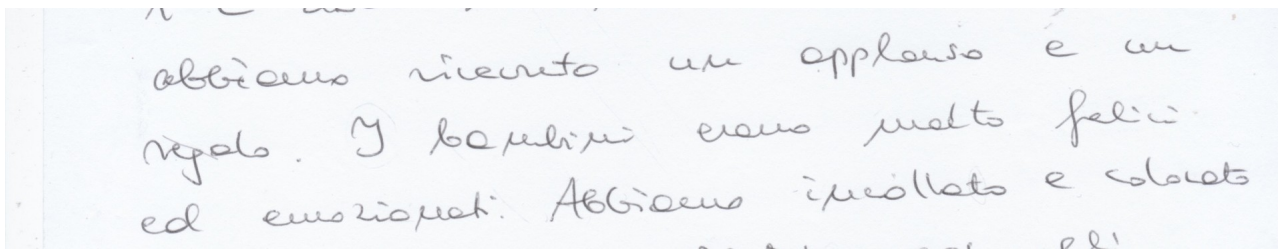 abbiamo ricevuto un applauso e un
regalo. I bambini erano molto felici
ed emozionati. Abbiamo incollato e colorato